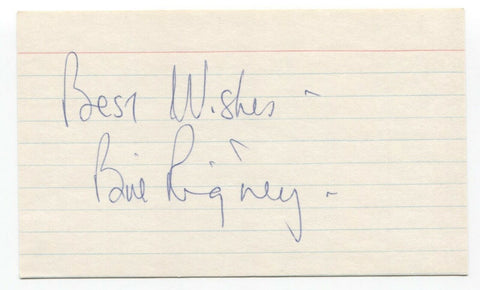 Best Wishes -
Bill Rigney -